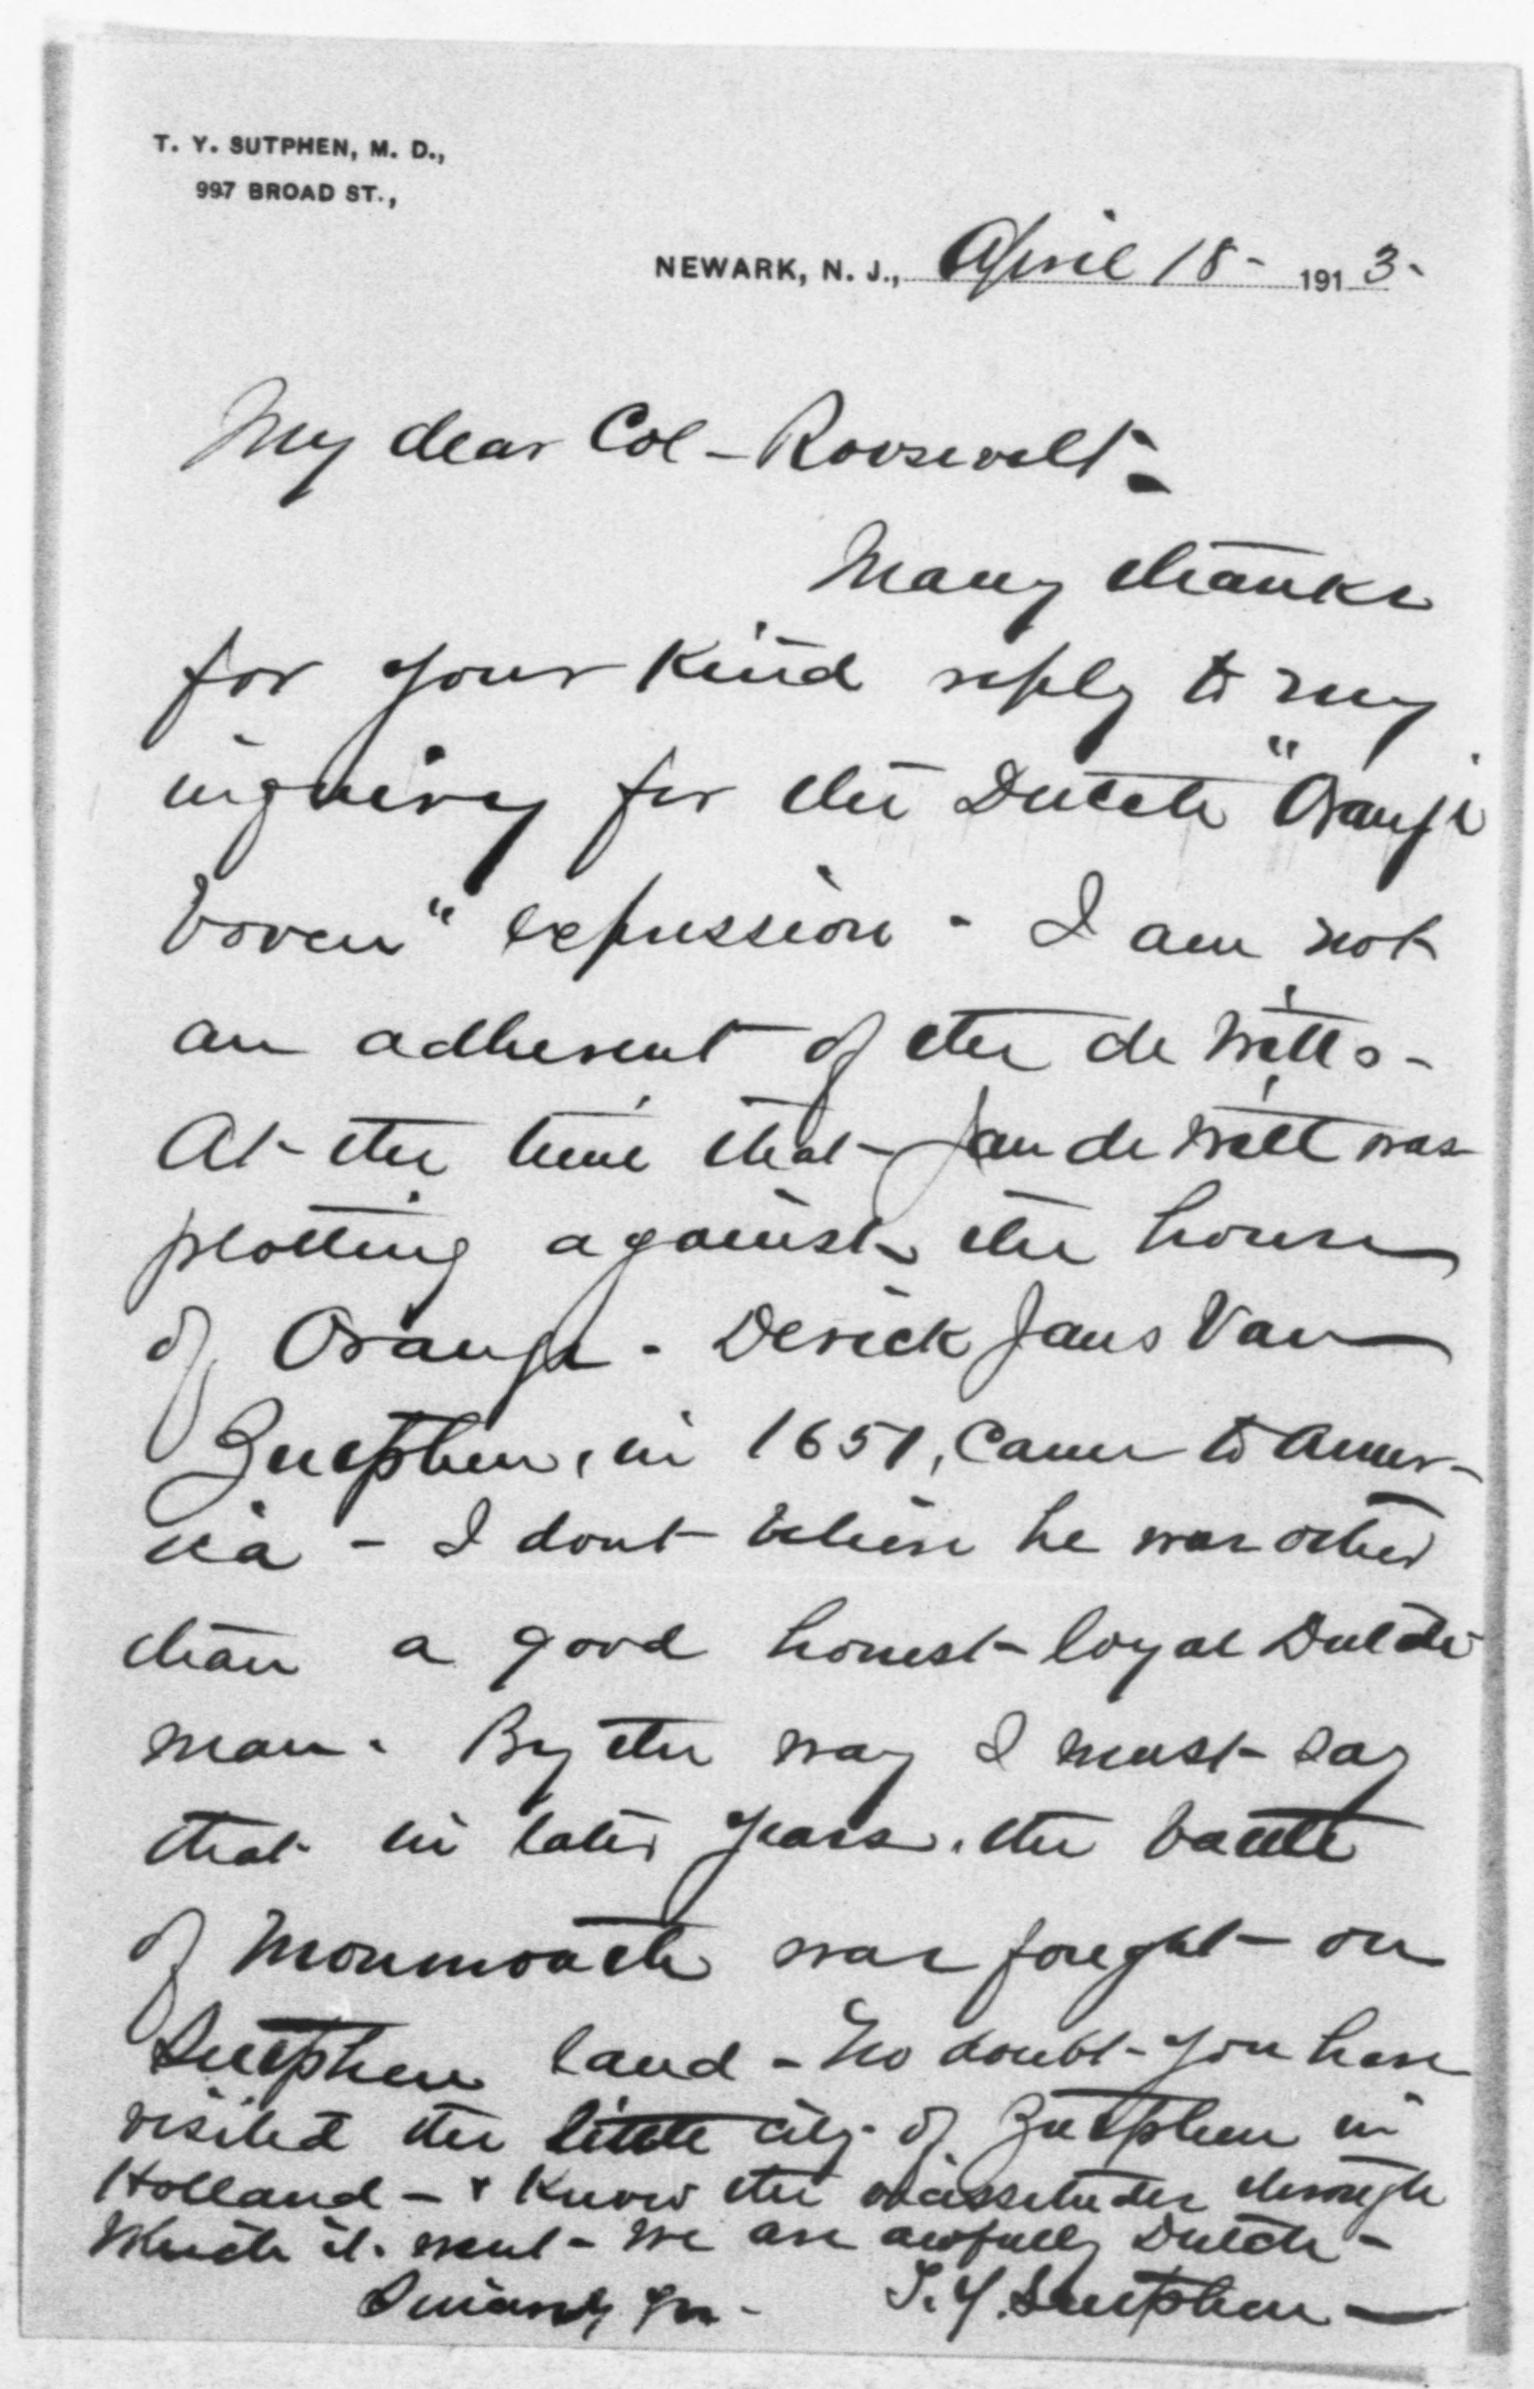 T. Y. SUTPHEN, M. D.,
997 BROAD ST.,
NEWARK, N. J., April 18- 1913-
My dear Col- Roosevelt-
Many thanks
for your kind reply to my
inquiry for the Dutch "Oranje
boven" expression - I am not
an adherent of the de Witts-
At the time that Jan de Witt was
plotting against the house
of Orange - Derick Jans Van
Zutphen, in 1651, came to Amer-
ica - I dont believe he was other
than a good honest loyal Dutch
man. By the way I must say
that in later years, the battle
of Monmouth was fought on
Sutphen land - No doubt you have
visited the little city of Zutphen in
Holland - & know the vicissitudes through
which it went - We are awfully Dutch -
Sincerely yrs - T. Y. Sutphen